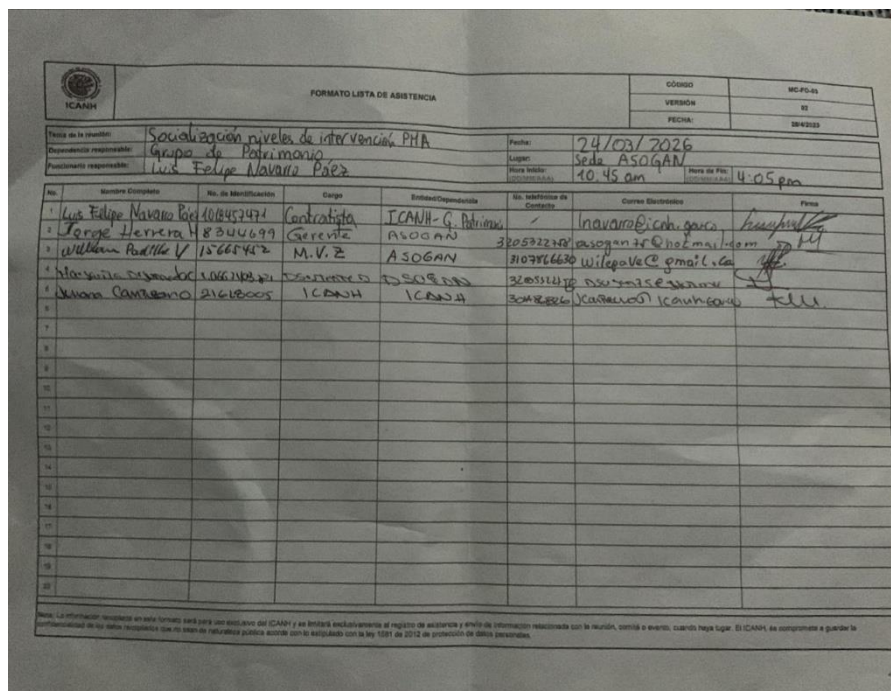 ICANH
FORMATO LISTA DE ASISTENCIA
CÓDIGO MC-FO-03
VERSIÓN 02
FECHA: 28/4/2023
Tema de la reunión: Socialización niveles de intervención PMA
Dependencia responsable: Grupo de Patrimonio
Funcionario responsable: Luis Felipe Navarro Páez
Fecha: 24/03/2026
Lugar: Sede ASOGAN
Hora Inicio: 10:45 am Hora de Fin: 4:05 pm
No. Nombre Completo No. de Identificación Cargo Entidad/Dependencia No. telefónico de Contacto Correo Electrónico Firma
1 Luis Felipe Navarro Páez Contratista ICANH-G. Patrimonio
2 Jorge Herrera H 8344699 Gerente ASOGAN 3205722758 asogan75@hotmail.com
3 William Padilla V 15665452 M.V.Z ASOGAN 3107866630 wilepave@gmail.co
4
5 ICANH ICANH
6
7
8
9
10
11
12
13
14
15
16
17
18
19
20
Nota: La información recopilada en este formato será para uso exclusivo del ICANH y se limitará exclusivamente al registro de asistencia y envío de información relacionada con la reunión, comité o evento, cuando haya lugar. El ICANH, se compromete a guardar la
confidencialidad de los datos recopilados que no sean de naturaleza pública acorde con lo estipulado con la ley 1581 de 2012 de protección de datos personales.